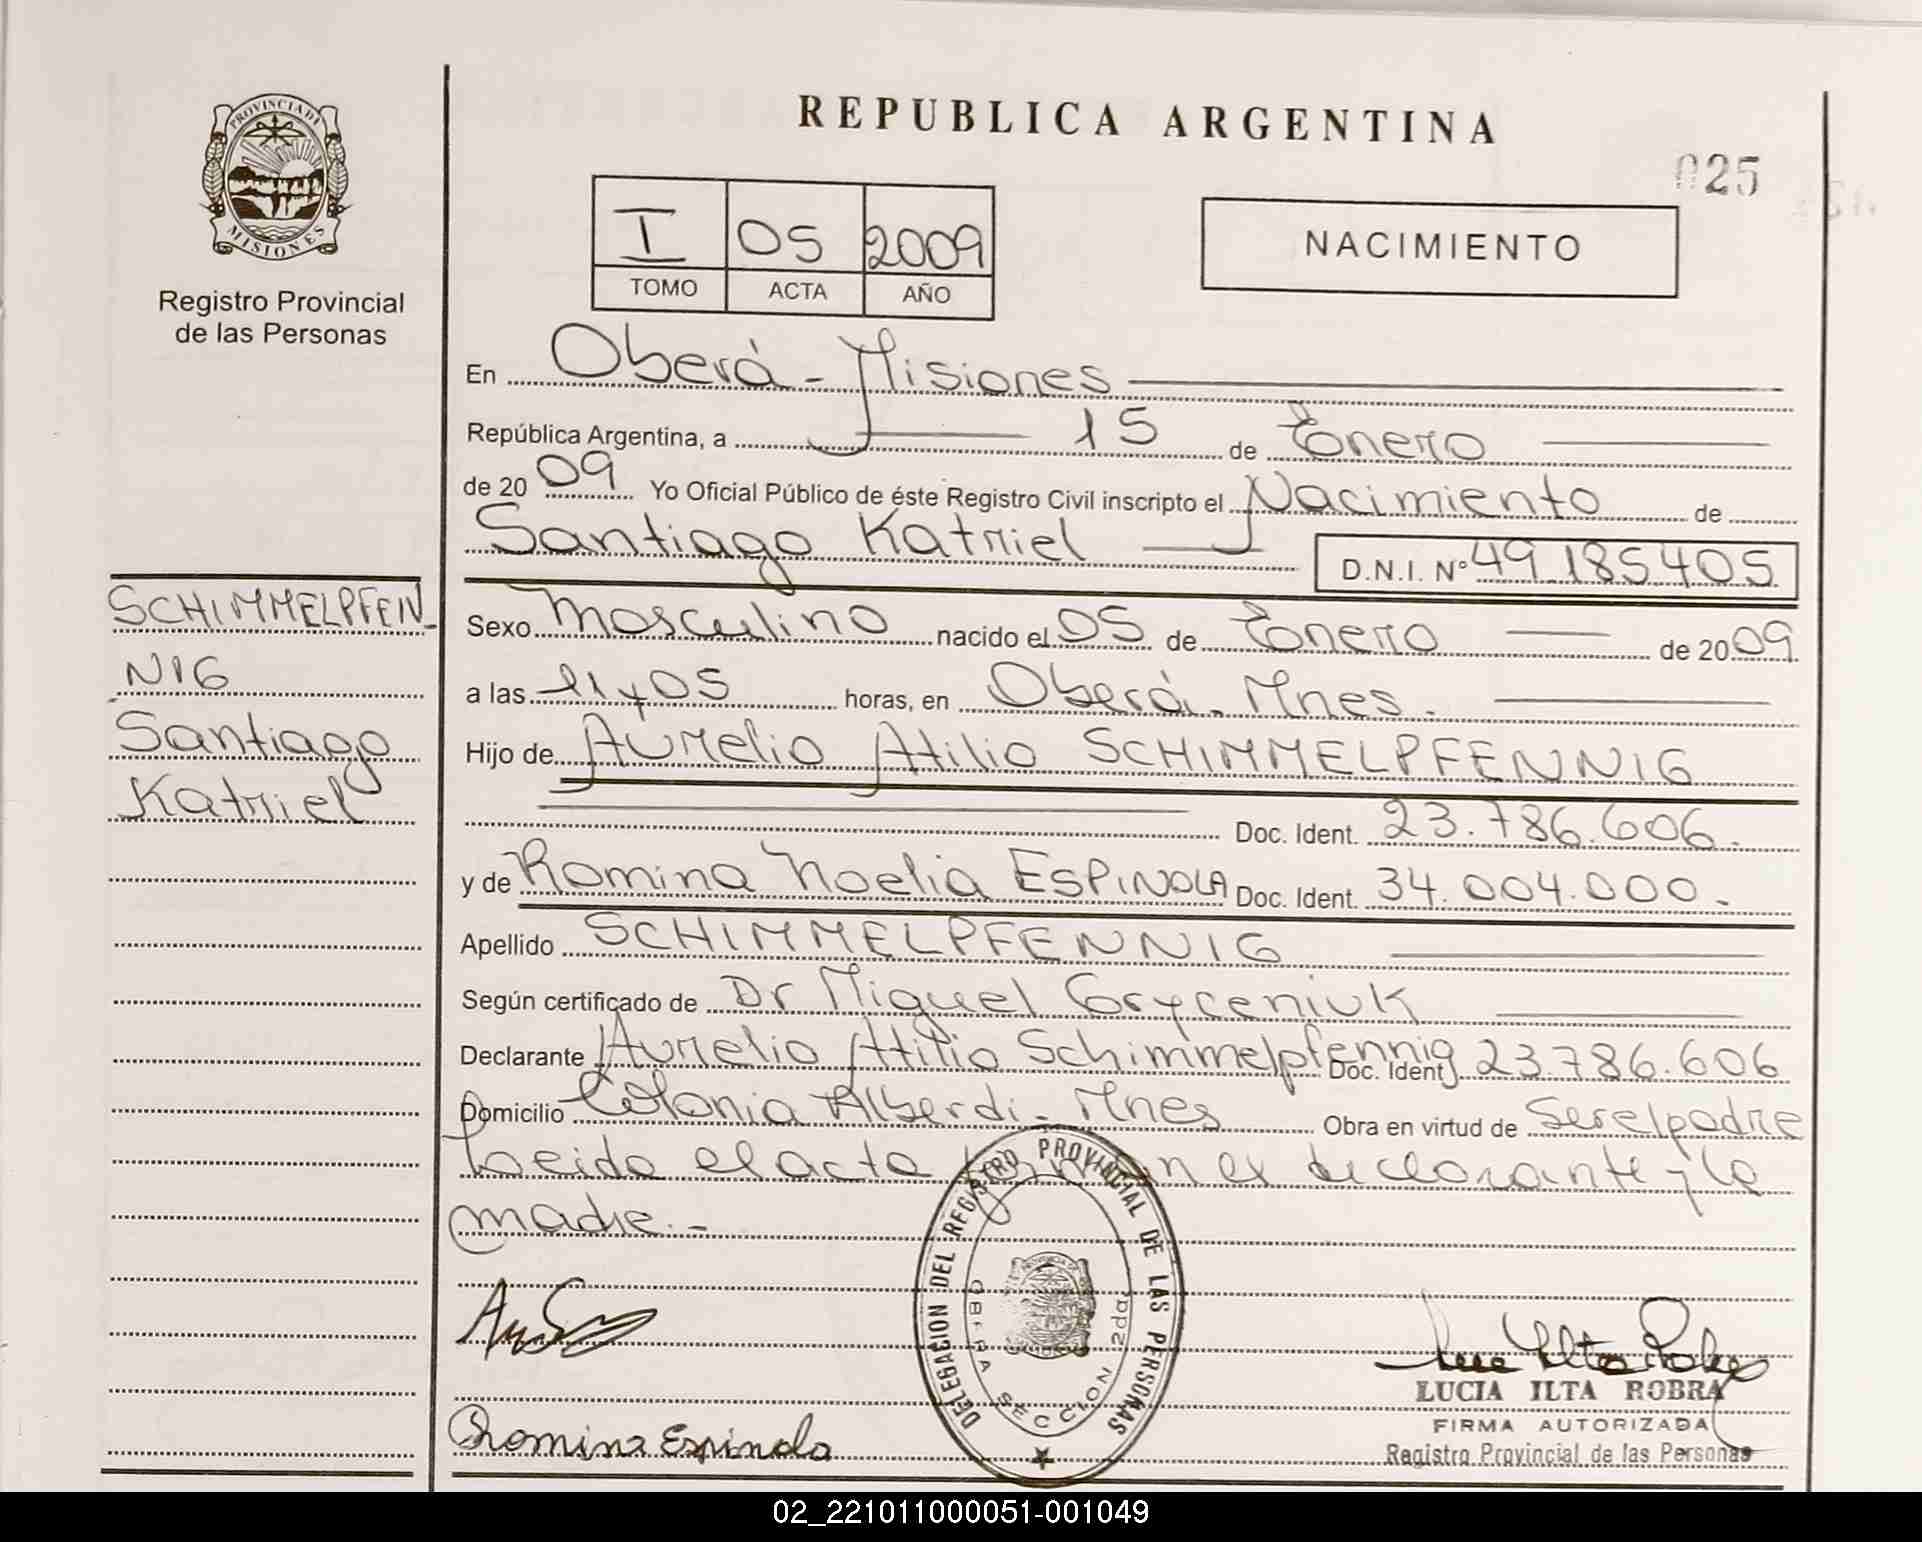 PROVINCIA DE
MISIONES
Registro Provincial
de las Personas
REPUBLICA ARGENTINA
025
I 05 2009
TOMO ACTA AÑO
NACIMIENTO
En Oberá - Misiones
República Argentina, a 15 de Enero
de 20 09 Yo Oficial Público de éste Registro Civil inscripto el Nacimiento de
Santiago Katriel D.N.I. Nº 49.185.405
SCHIMMELPFEN_
NIG
Santiago
Katriel
Sexo Masculino nacido el 05 de Enero de 2009
a las 11 y 05 horas, en Oberá - Mnes.
Hijo de Aurelio Atilio SCHIMMELPFENNIG
Doc. Ident. 23.786.606.
y de Romina Noelia ESPINOLA Doc. Ident. 34.004.000.-
Apellido SCHIMMELPFENNIG
Según certificado de Dr Miguel Gryceniuk
Declarante Aurelio Atilio Schimmelpfennig Doc. Ident. 23.786.606
Domicilio Colonia Alberdi - Mnes Obra en virtud de Ser el padre
Leida el acta el declarante y la
madre.-
DELEGACION DEL REGISTRO PROVINCIAL DE LAS PERSONAS
OBERA SECCION 2da.
Romina Espinola
LUCIA ILTA ROBRA
FIRMA AUTORIZADA
Registro Provincial de las Personas
02_221011000051-001049